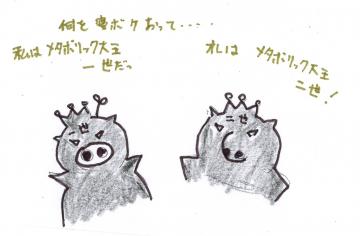 何を寝ボケおって・・・・
私はメタボリック大王
一世だっ
オレは メタボリック大王
二世！
一世
二世